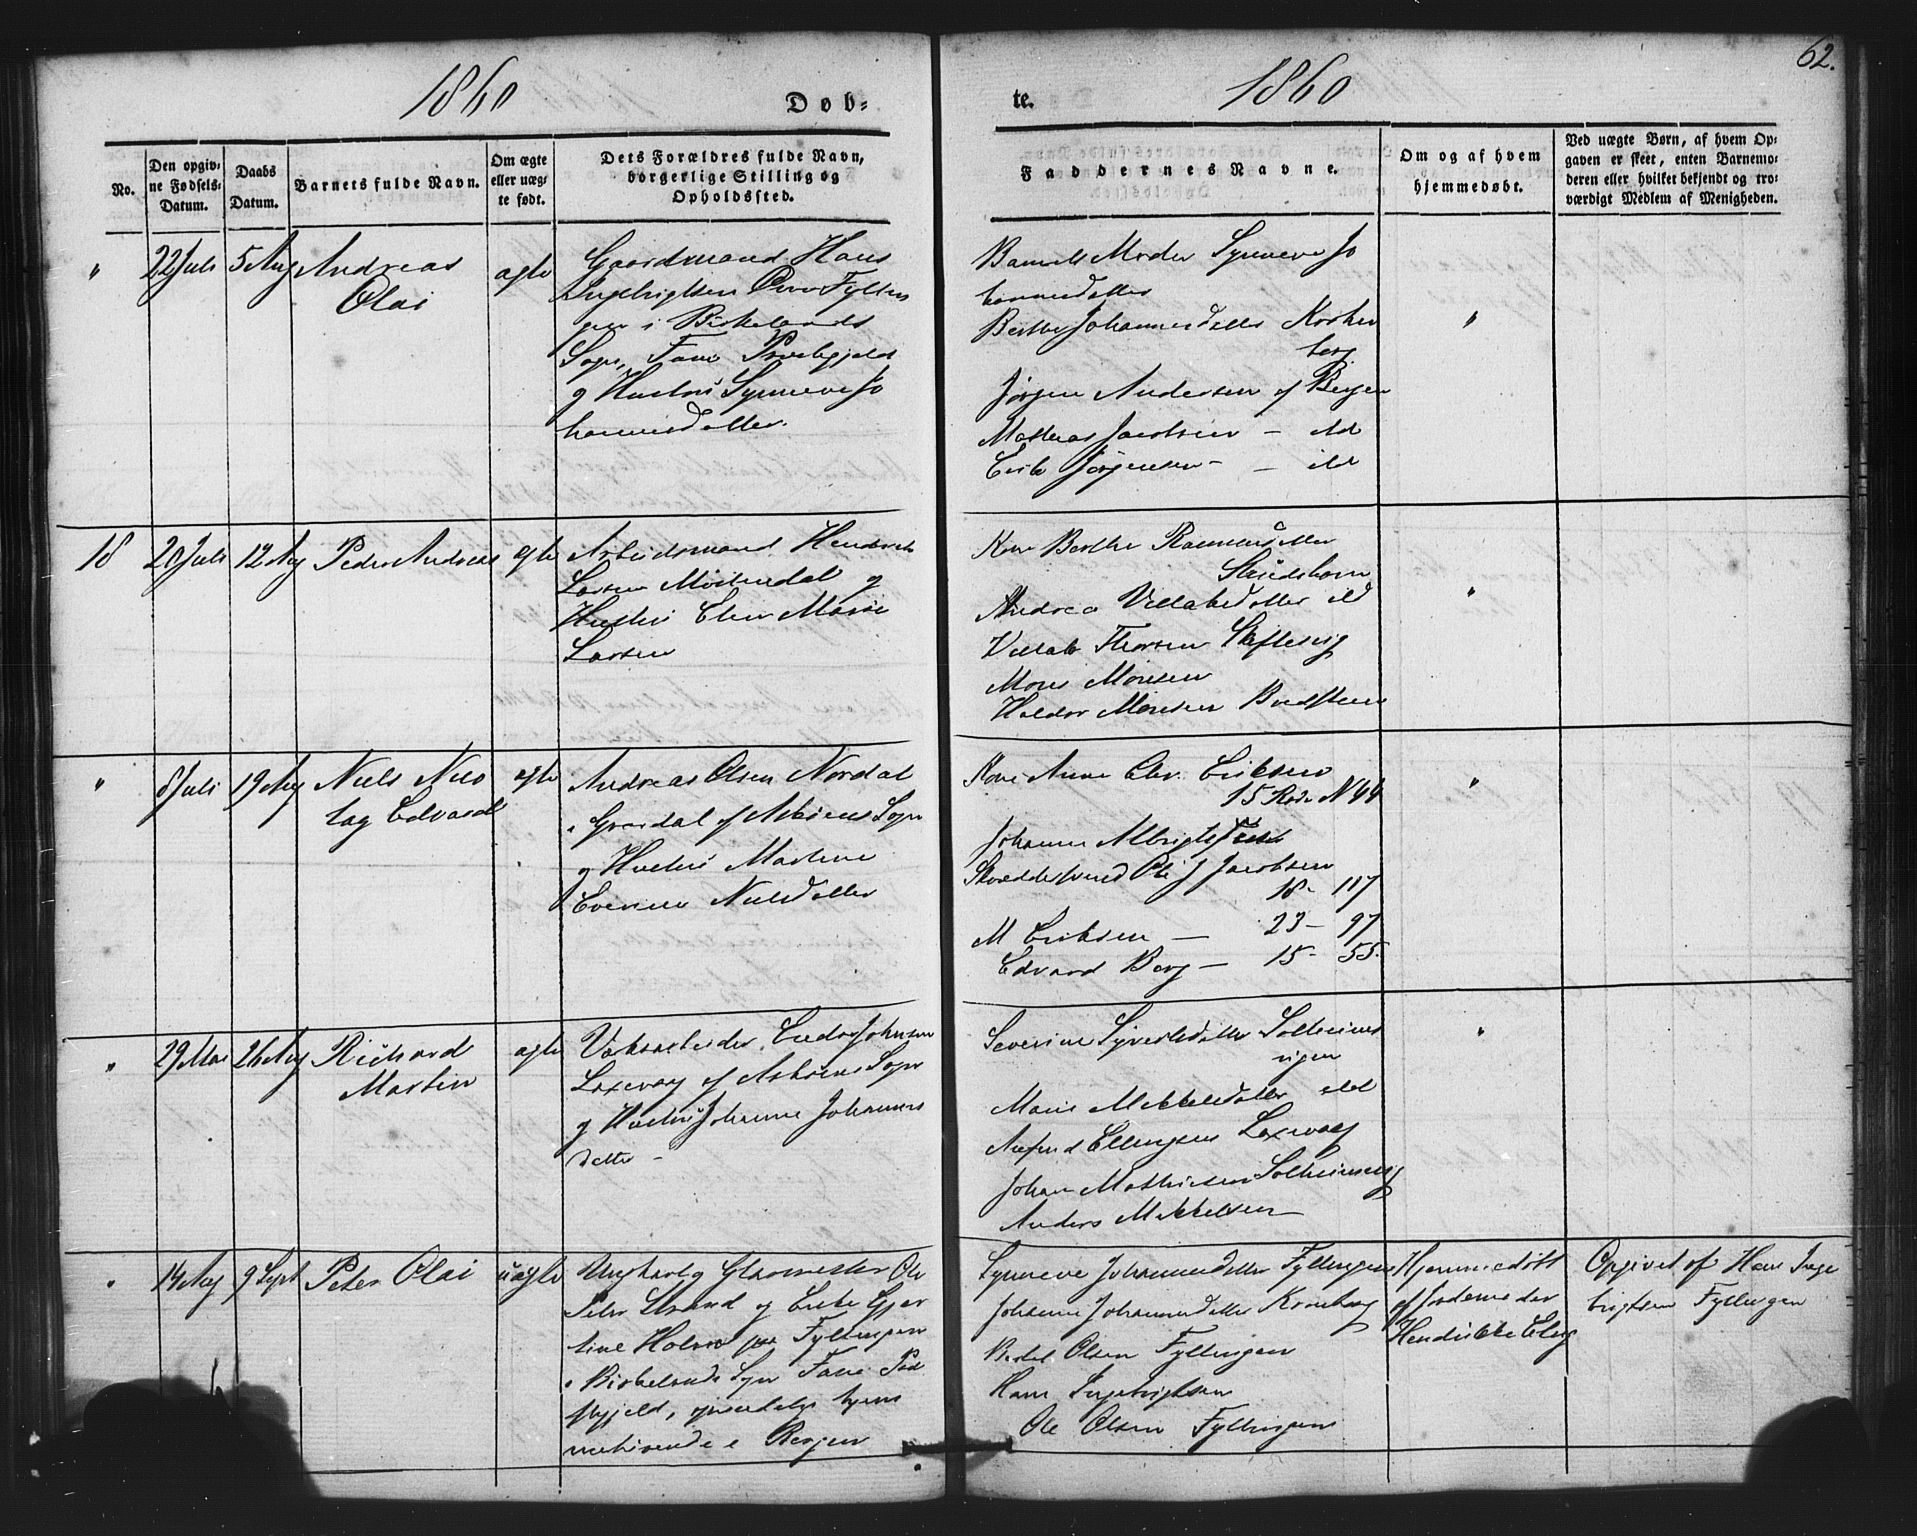 1860
Døb-
te.
1860
62.
No.
Den opgiv-
ne Fødsels-
Datum.
Daabs
Datum.
Barnets fulde Navn.
Om ægte
eller uæg-
te født.
Dets Forældres fulde Navn,
borgerlige Stilling og
Opholdssted.
Faddernes Navne.
Om og af hvem
hjemmedøbt.
Ved uægte Børn, af hvem Op-
gaven er skeet, enten Barnemo-
deren eller hvilket bekjendt og tro-
værdigt Medlem af Menigheden.
"
22 Juli
5 Aug
Andreas
Olai
ægte
Gaardmand Hans
Ingebrigtsen Øvre Fyllin
gen i Birkelands
Sogn, Fane Præstegjeld
og Hustru Synneve Jo
hannesdatter.
Barnets Moder Synneve Jo
hannesdatter
Berthe Johannesdatter
Jørgen Andersen af Bergen
Mathias Jacobsen - ibd
Erik Jørgensen - - ibd
"
18
20 Juli
12 Aug
Peder Andreas
ægte
Arbeidsmand Hendrick
Larsen Møllendal og
Hustru Elen Marie
Larsen
Kone Berthe Rasmusdatter
Andrea Villatsdatter ibd
Thorsen
Mons Monsen
Haldor Monsen
"
"
8 Juli
19 Aug
Niels Nico
lay Edvardt
ægte
Andreas Olsen Nordal
i Gravdal af Askøens Sogn
og Hustru Martine
Nielsdatter
Kone Anne Chr. Eriksen
15 Rode N 44
Johanne Albrigtsen
Skræddersvend Ole J Jacobsen
18 - 117
M Eriksen - 23 - 97
Edvard Berg - 15 - 55.
"
"
29 Mai
26 Aug
Richard
Martin
ægte
Værksarbeider Endre Johnsen
Laxevaag af Askøens Sogn
og Hustru Johanne Johannes
datter -
Severine Syversdatter Solheims
vigen
Marie Mikkelsdatter ibd
Ellingsen Laxevaag
Johan Mathiesen Solheimsvig
Anders Mikkelsen -
"
"
14 Aug
9 Sept
Peter Olai
uægte
Ungkarl og Glarmester Ole
Peter Strand og Enke Gjer
tine Holm paa Fyllingen
i Birkelands Sogn Fane Præ
stegjeld,
i Bergen
Synneve Johannesdatter Fyllingen
Johanne Johannesdatter Kroneborg
Bertel Olsen Fyllingen
Hans Ingebrigtsen
Ole Olsen Fyllingen
Hjemmedøbt
af Jordemoder
Hendrikke
Opgivet af Hans Inge
brigtsen Fyllingen